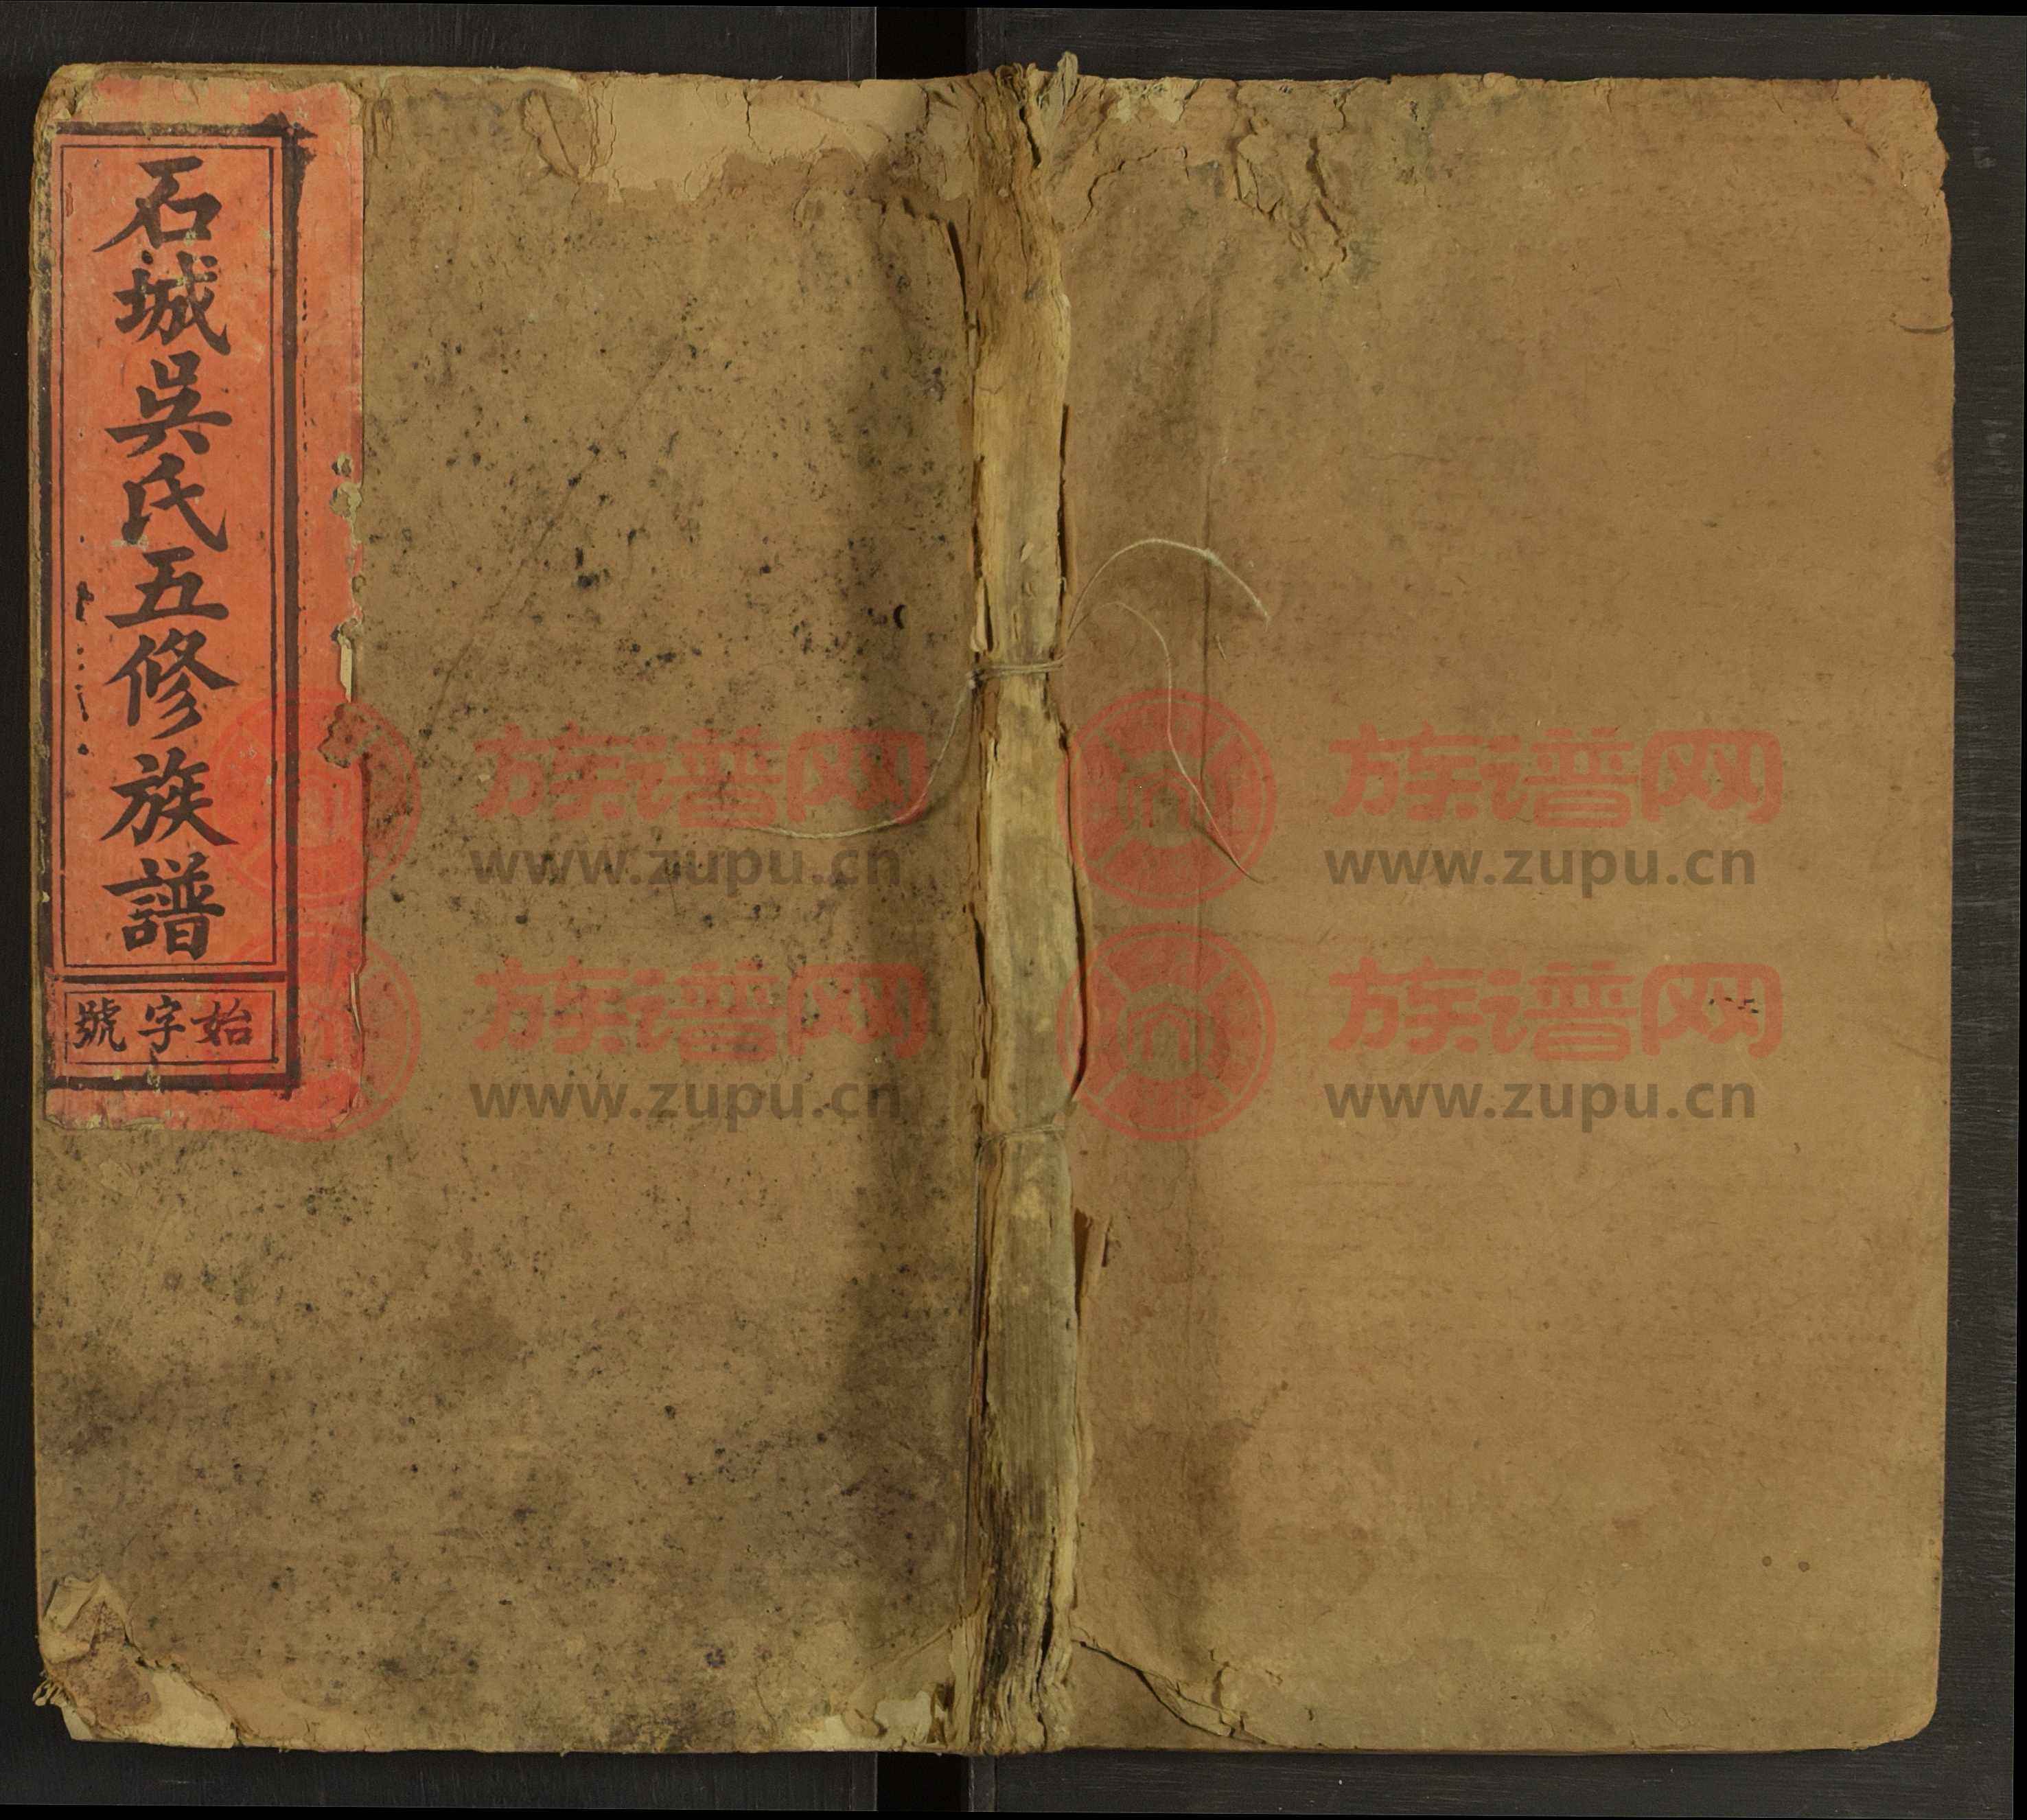 石城吳氏五修族譜
始字號
族谱网
www.zupu.cn
族谱网
www.zupu.cn
族谱网
www.zupu.cn
族谱网
www.zupu.cn